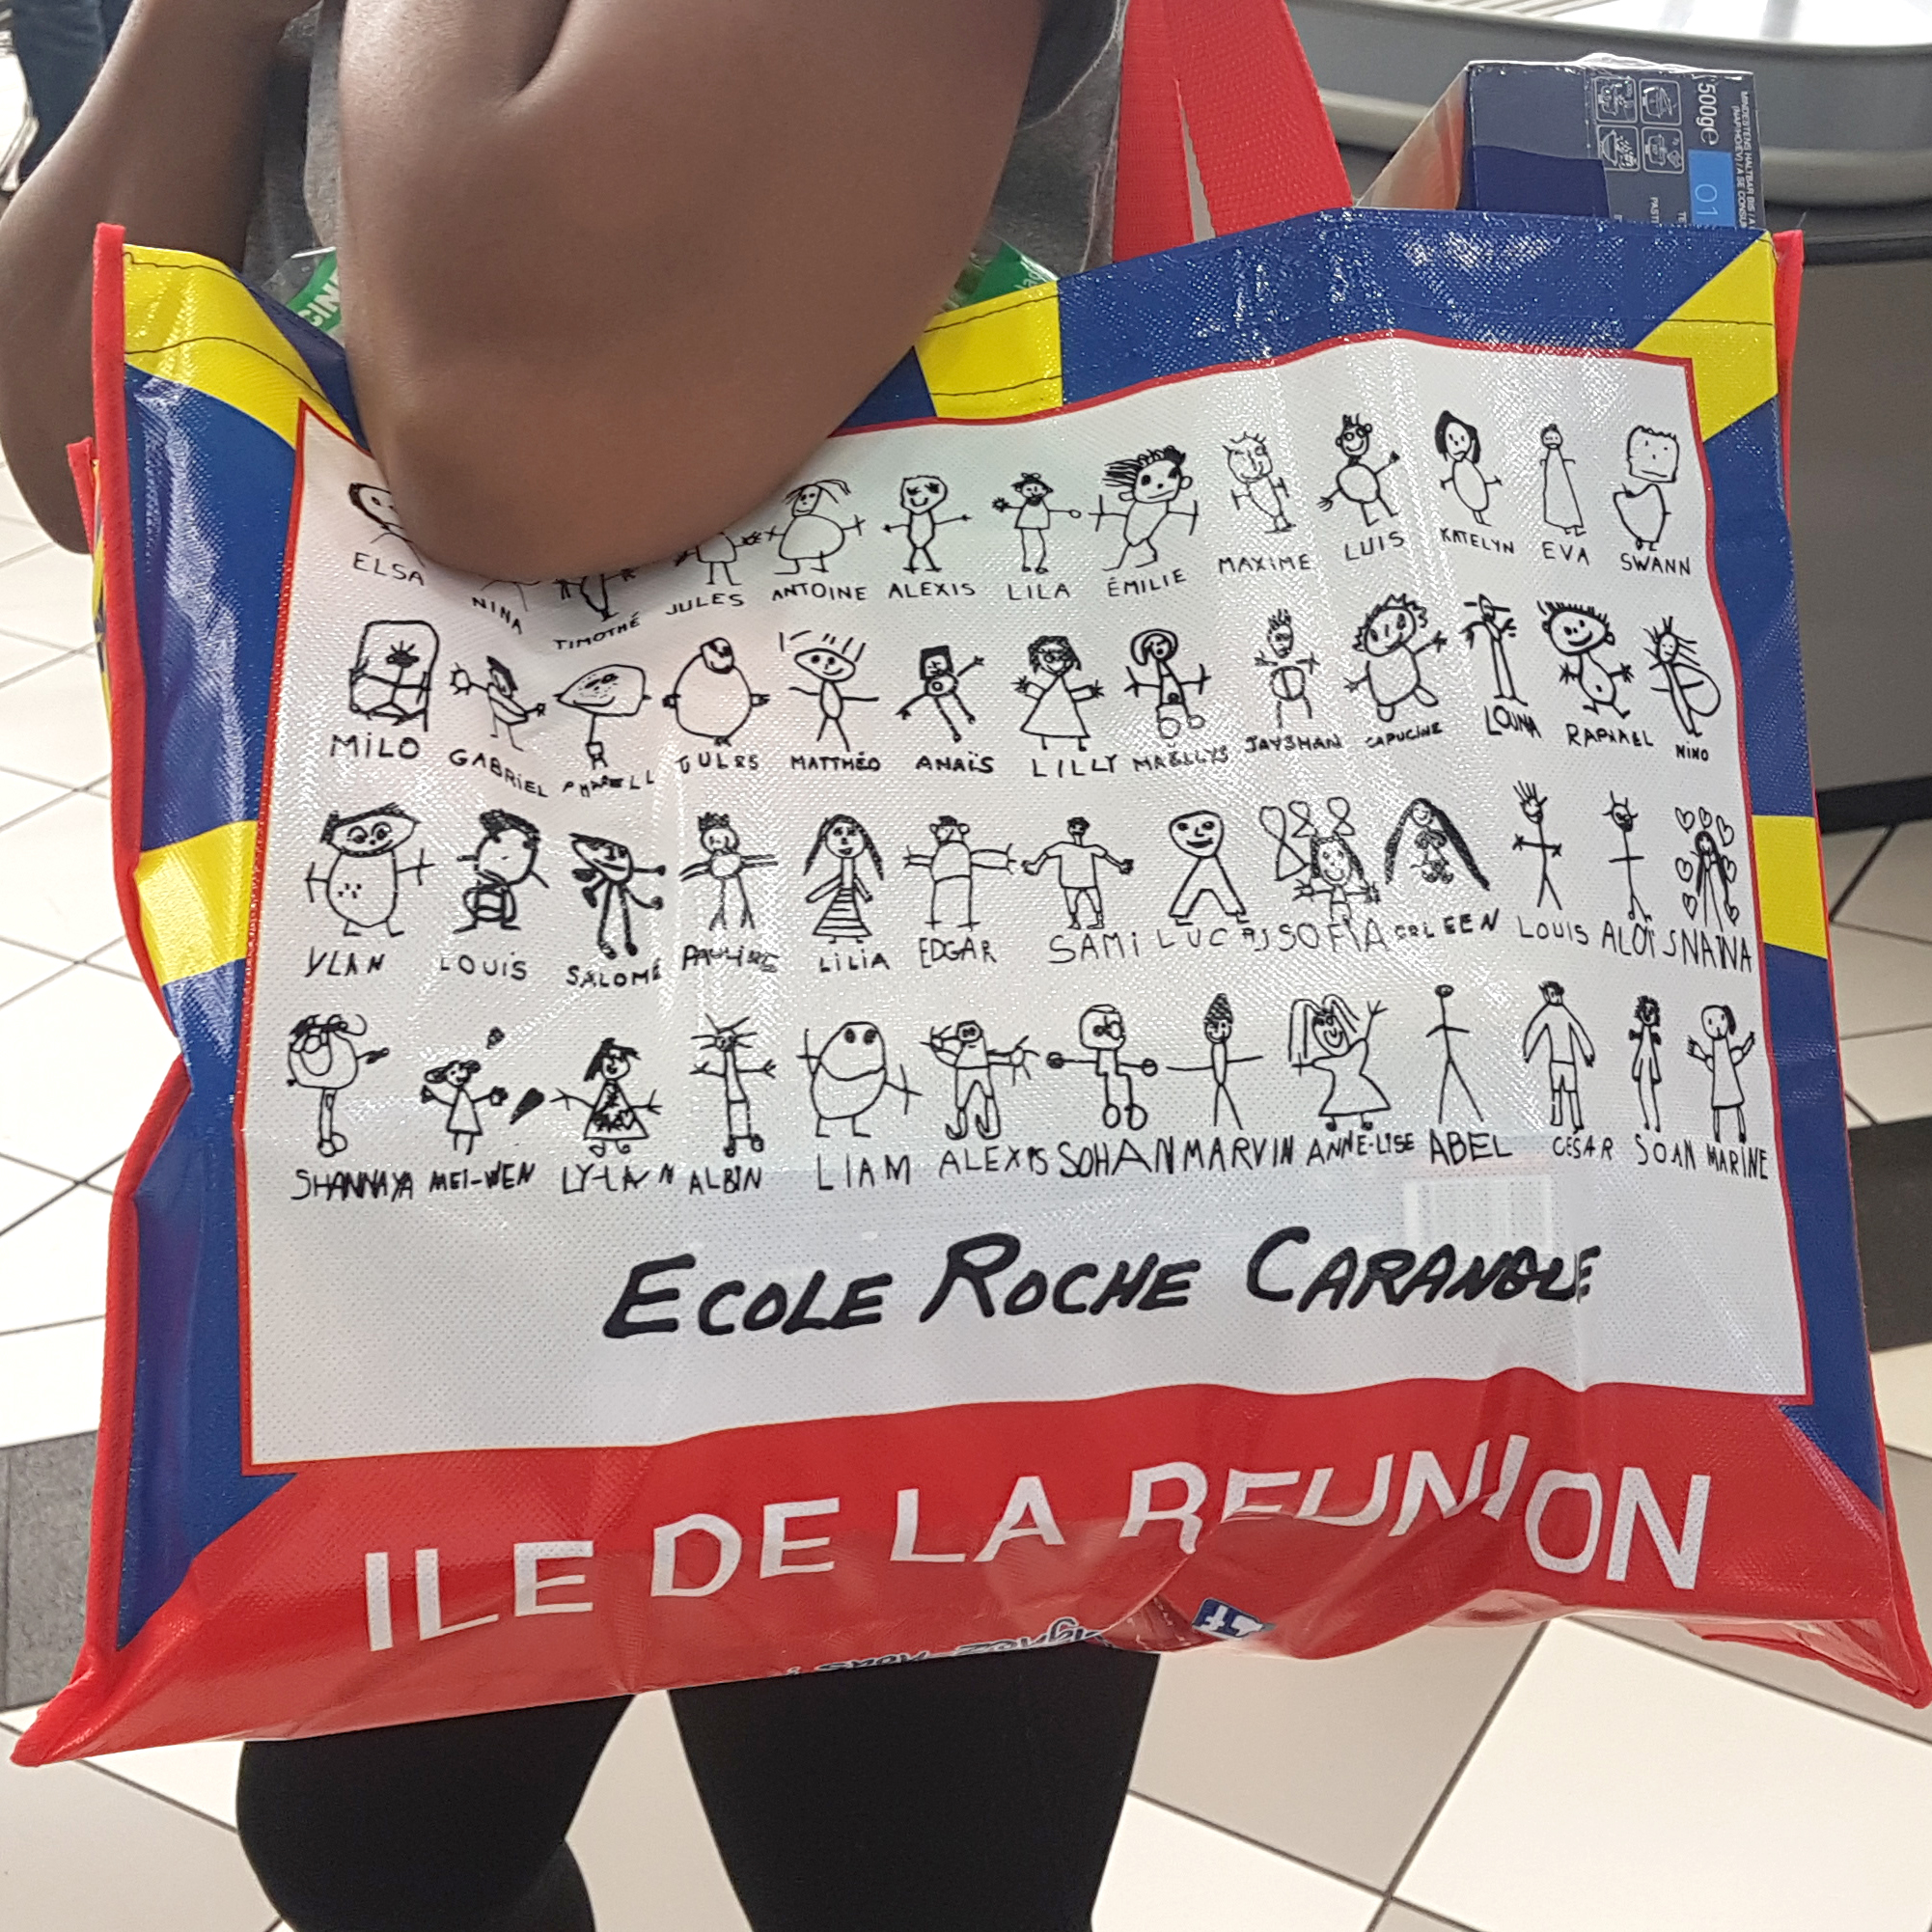 500g℮
01
CIN
ELSA NINA TIMOTHÉ JULES ANTOINE ALEXIS LILA ÉMILIE MAXIME LUIS KATELYN EVA SWANN
MILO GABRIEL PHARELL JULES MATTHÉO ANAÏS LILLY MAËLLYS JAYSHAN CAPUCINE LOUNA RAPHAEL NINO
YLAN LOUIS SALOMÉ PAULINE LILIA EDGAR SAMI LUCAS SOFIA LOUIS ALOÏS NAÏNA
SHANNAYA MEI-WEN LY-LAN ALBIN LIAM ALEXIS SOHAN MARVIN ANNE-LISE ABEL CÉSAR SOAN MARINE
ECOLE ROCHE CARANGUE
ILE DE LA REUNION